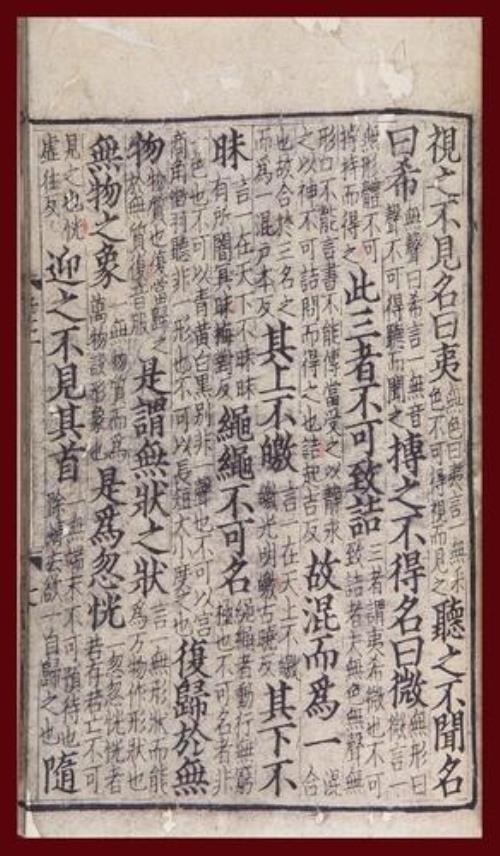 視之不見名曰夷無色曰夷言一無采色不可得視而見之聽之不聞名
曰希無聲曰希言一無音聲不可得聽而聞之搏之不得名曰微無形曰微言一
無形體不可摶持而得之此三者不可致詰三者謂夷希微也不可致詰者夫無色無聲無
形口不能言書不能傳當受之以靜求之以神不可詰問而得之也詰起吉反故混而爲一混合
也故合於三名之而爲一混戶本反其上不皦言一在天上不皦皦光明皦古曉反其下不
昧言一在天下不昧昧有所闇冥昧梅對反繩繩不可名繩繩者動行無窮極也不可名者非
一色也不可以青黃白黑別非一聲也不可以宮商角徵羽聽非一形也不可以長短大小度之也復歸於無
物物質也復當歸之於無質復音服是謂無狀之狀言一無形狀而能爲万物作形狀也
無物之象一無物質而爲萬物設形象也是爲忽恍一忽忽恍恍者若存若亡不可
見之也恍虛往反迎之不見其首一無端末不可預待也除情去欲一自歸之也隨